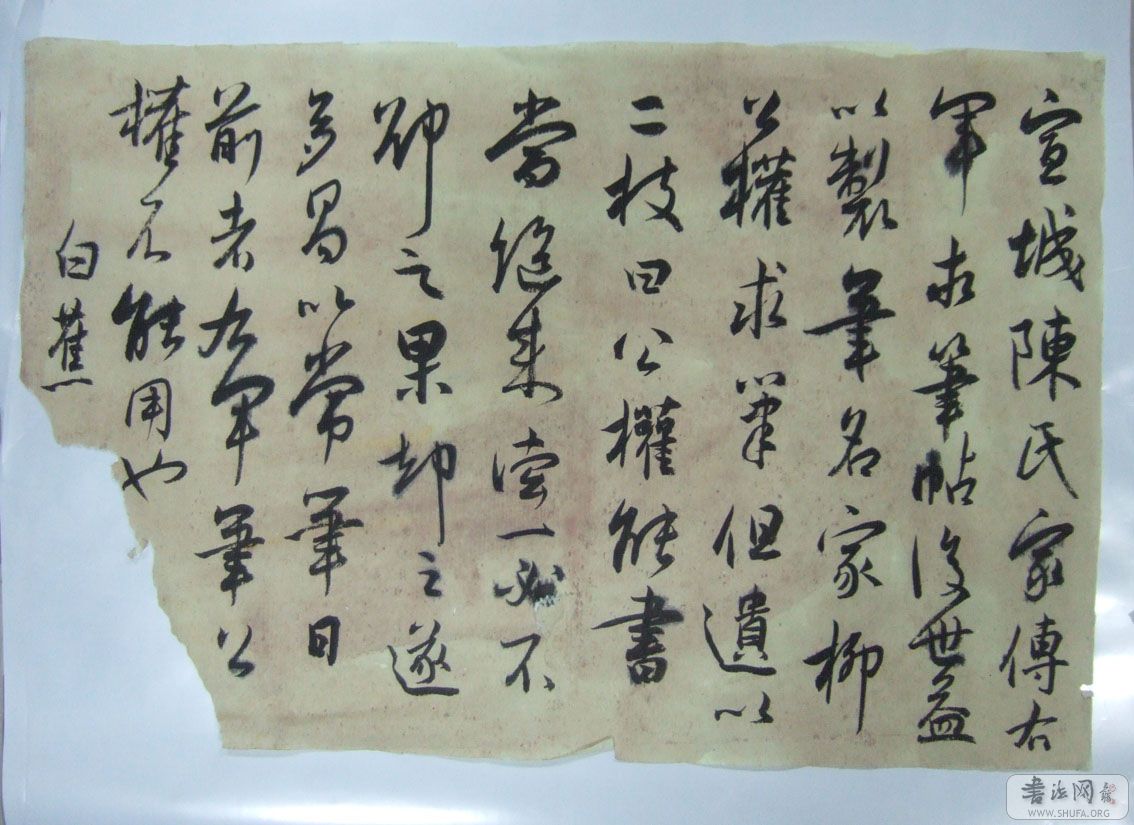 宣城陳氏家傳右
軍求筆帖後世益
以製筆名家柳
公權求筆但遺以
二枝曰公權能書
當繼來索一必不
却之果却之遂
多易以常筆曰
前者右軍筆公
權不能用也
白蕉
書法网
WWW.SHUFA.ORG